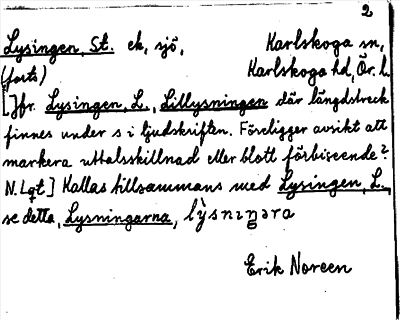 2
Lysingen, St. ek, sjö, Karlskoga sn,
(forts) Karlskoga hd, Ör. l.
[Jfr. Lysingen, L., Lillysningen där längdstreck
finnes under s i ljudskriften. Föreligger avsikt att
markera uttalsskillnad eller blott förbiseende?
N. Lqt] Kallas tillsammans med Lysingen, L.,
se detta, Lysningarna, lỳsnıŋara
Erik Noreen